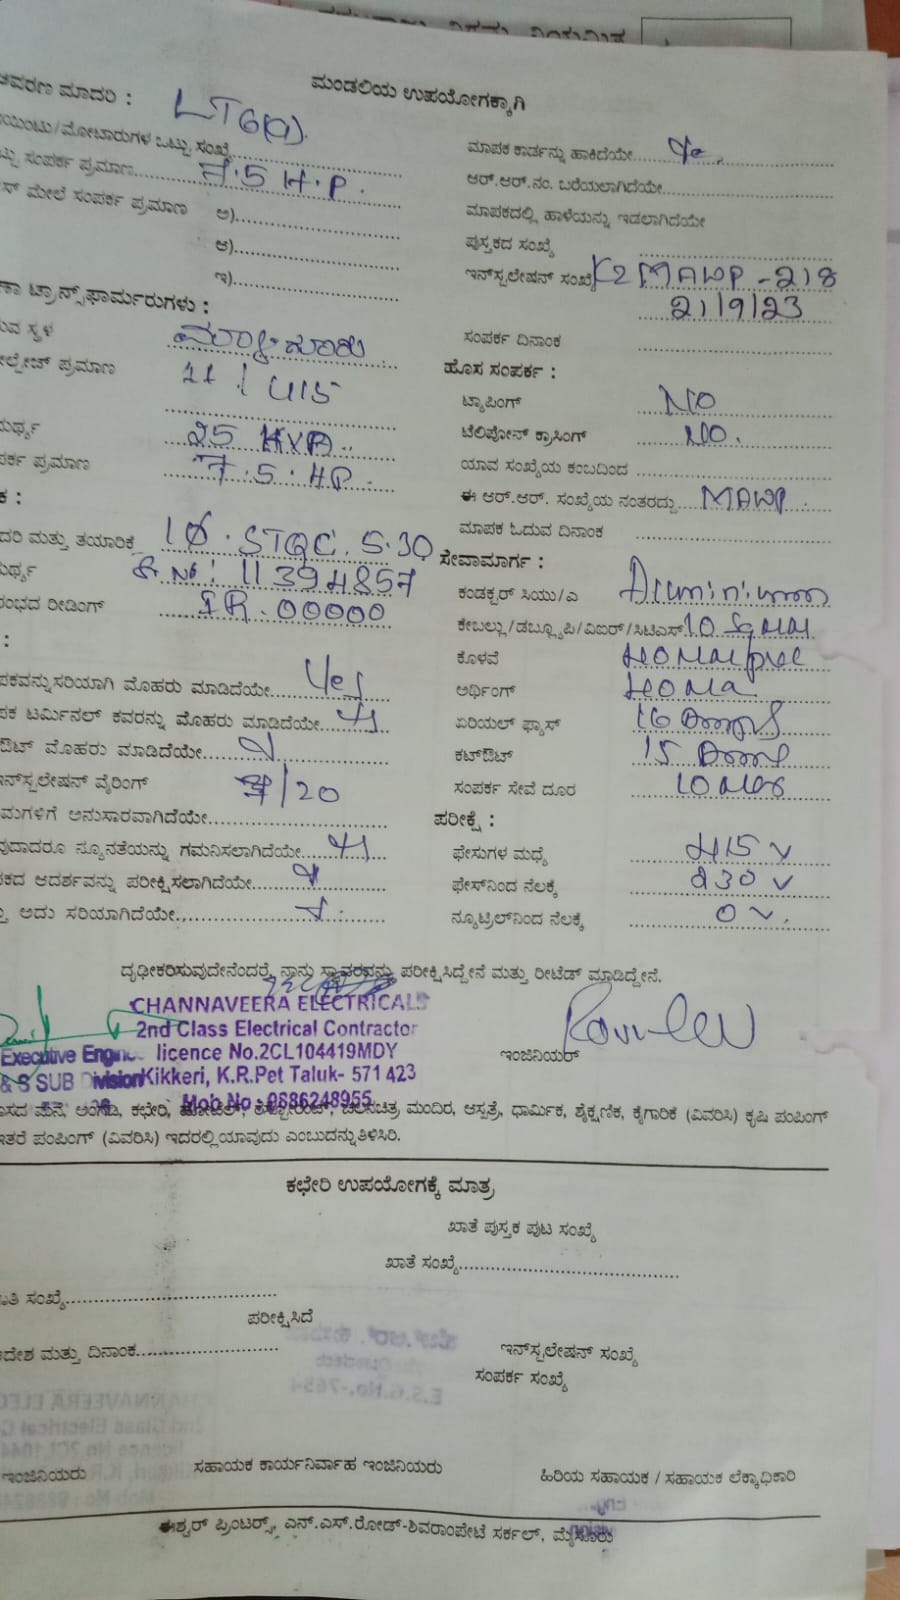 ಮಂಡಲಿಯ ಉಪಯೋಗಕ್ಕಾಗಿ
ಆವರಣ ಮಾದರಿ : LT6(a)
ಯಿಂಟು/ಮೋಟಾರುಗಳ ಒಟ್ಟು ಸಂಖ್ಯೆ
ಟ್ಟು ಸಂಪರ್ಕ ಪ್ರಮಾಣ 7.5 H.P.
ಸ್ ಮೇಲೆ ಸಂಪರ್ಕ ಪ್ರಮಾಣ ಅ)
ಆ)
ಇ)
ಟ್ರಾನ್ಸ್‌ಫಾರ್ಮರುಗಳು :
ರುವ ಸ್ಥಳ
ೋಲ್ಟೇಜ್ ಪ್ರಮಾಣ 11 / 415
ಮರ್ಥ್ಯ 25 KVA
ಪರ್ಕ ಪ್ರಮಾಣ 7.5.HP.
ಕ :
ದರಿ ಮತ್ತು ತಯಾರಿಕೆ 10. STQC. 5-30
ಮರ್ಥ್ಯ S. No: 11394857
ರಂಭದ ರೀಡಿಂಗ್ IR.00000
ಪಕವನ್ನು ಸರಿಯಾಗಿ ಮೊಹರು ಮಾಡಿದೆಯೇ Yes
ಪಕ ಟರ್ಮಿನಲ್ ಕವರನ್ನು ಮೊಹರು ಮಾಡಿದೆಯೇ
ಔಟ್ ಮೊಹರು ಮಾಡಿದೆಯೇ
ಇನ್‌ಸ್ಟಲೇಷನ್ ವೈರಿಂಗ್ /20
ಯಮಗಳಿಗೆ ಅನುಸಾರವಾಗಿದೆಯೇ
ವುದಾದರೂ ನ್ಯೂನತೆಯನ್ನು ಗಮನಿಸಲಾಗಿದೆಯೇ
ಪಕದ ಆದರ್ಶವನ್ನು ಪರೀಕ್ಷಿಸಲಾಗಿದೆಯೇ
ತ್ತು ಅದು ಸರಿಯಾಗಿದೆಯೇ
ಮಾಪಕ ಕಾರ್ಡನ್ನು ಹಾಕಿದೆಯೇ
ಆರ್.ಆರ್.ನಂ. ಬರೆಯಲಾಗಿದೆಯೇ
ಮಾಪಕದಲ್ಲಿ ಹಾಳೆಯನ್ನು ಇಡಲಾಗಿದೆಯೇ
ಪುಸ್ತಕದ ಸಂಖ್ಯೆ
ಇನ್‌ಸ್ಟಲೇಷನ್ ಸಂಖ್ಯೆ K2 MAWP-218
21/9/23
ಸಂಪರ್ಕ ದಿನಾಂಕ
ಹೊಸ ಸಂಪರ್ಕ :
ಟ್ಯಾಪಿಂಗ್ NO
ಟೆಲಿಫೋನ್ ಕ್ರಾಸಿಂಗ್ NO.
ಯಾವ ಸಂಖ್ಯೆಯ ಕಂಬದಿಂದ
ಈ ಆರ್.ಆರ್. ಸಂಖ್ಯೆಯ ನಂತರದ್ದು MAWP
ಮಾಪಕ ಓದುವ ದಿನಾಂಕ
ಸೇವಾಮಾರ್ಗ :
ಕಂಡಕ್ಟರ್ ಸಿಯು/ಎ
ಕೇಬಲ್ಲು/ಡಬ್ಲ್ಯೂಪಿ/ವಿಐಆರ್/ಸಿಟಿಎಸ್ 10 Sq MM
ಕೊಳವೆ
ಅರ್ಥಿಂಗ್
ಏರಿಯಲ್ ಫ್ಯೂಸ್ 16 Amps
ಕಟ್‌ಔಟ್ 15 Amps
ಸಂಪರ್ಕ ಸೇವೆ ದೂರ
ಪರೀಕ್ಷೆ :
ಫೇಸುಗಳ ಮಧ್ಯೆ 415 V
ಫೇಸ್‌ನಿಂದ ನೆಲಕ್ಕೆ 230 V
ನ್ಯೂಟ್ರಲ್‌ನಿಂದ ನೆಲಕ್ಕೆ 0 V.
ದೃಢೀಕರಿಸುವುದೇನೆಂದರೆ, ನಾನು ಸ್ಥಾವರವನ್ನು ಪರೀಕ್ಷಿಸಿದ್ದೇನೆ ಮತ್ತು ರೀಟೆಡ್ ಮಾಡಿದ್ದೇನೆ.
CHANNAVEERA ELECTRICALS
2nd Class Electrical Contractor
licence No.2CL104419MDY
Kikkeri, K.R.Pet Taluk- 571 423
Mob No : 9686248955
Executive Engineer
& S SUB Division
ಇಂಜಿನಿಯರ್
ಾಸದ ಮನೆ, ಅಂಗಡಿ, ಕಛೇರಿ, ಹೋಟೆಲ್, ಚಲನಚಿತ್ರ ಮಂದಿರ, ಆಸ್ಪತ್ರೆ, ಧಾರ್ಮಿಕ, ಶೈಕ್ಷಣಿಕ, ಕೈಗಾರಿಕೆ (ವಿವರಿಸಿ) ಕೃಷಿ ಪಂಪಿಂಗ್
ಇತರೆ ಪಂಪಿಂಗ್ (ವಿವರಿಸಿ) ಇದರಲ್ಲಿ ಯಾವುದು ಎಂಬುದನ್ನು ತಿಳಿಸಿರಿ.
ಕಛೇರಿ ಉಪಯೋಗಕ್ಕೆ ಮಾತ್ರ
ಖಾತೆ ಪುಸ್ತಕ ಪುಟ ಸಂಖ್ಯೆ
ಖಾತೆ ಸಂಖ್ಯೆ
ಸಂಖ್ಯೆ
ಪರೀಕ್ಷಿಸಿದೆ
ದೇಶ ಮತ್ತು ದಿನಾಂಕ
ಇನ್‌ಸ್ಟಲೇಷನ್ ಸಂಖ್ಯೆ
ಸಂಪರ್ಕ ಸಂಖ್ಯೆ
ಇಂಜಿನಿಯರು ಸಹಾಯಕ ಕಾರ್ಯನಿರ್ವಾಹ ಇಂಜಿನಿಯರು ಹಿರಿಯ ಸಹಾಯಕ / ಸಹಾಯಕ ಲೆಕ್ಕಾಧಿಕಾರಿ
ಈಶ್ವರ್ ಪ್ರಿಂಟರ್ಸ್, ಎನ್.ಎಸ್.ರೋಡ್-ಶಿವರಾಂಪೇಟೆ ಸರ್ಕಲ್, ಮೈಸೂರು